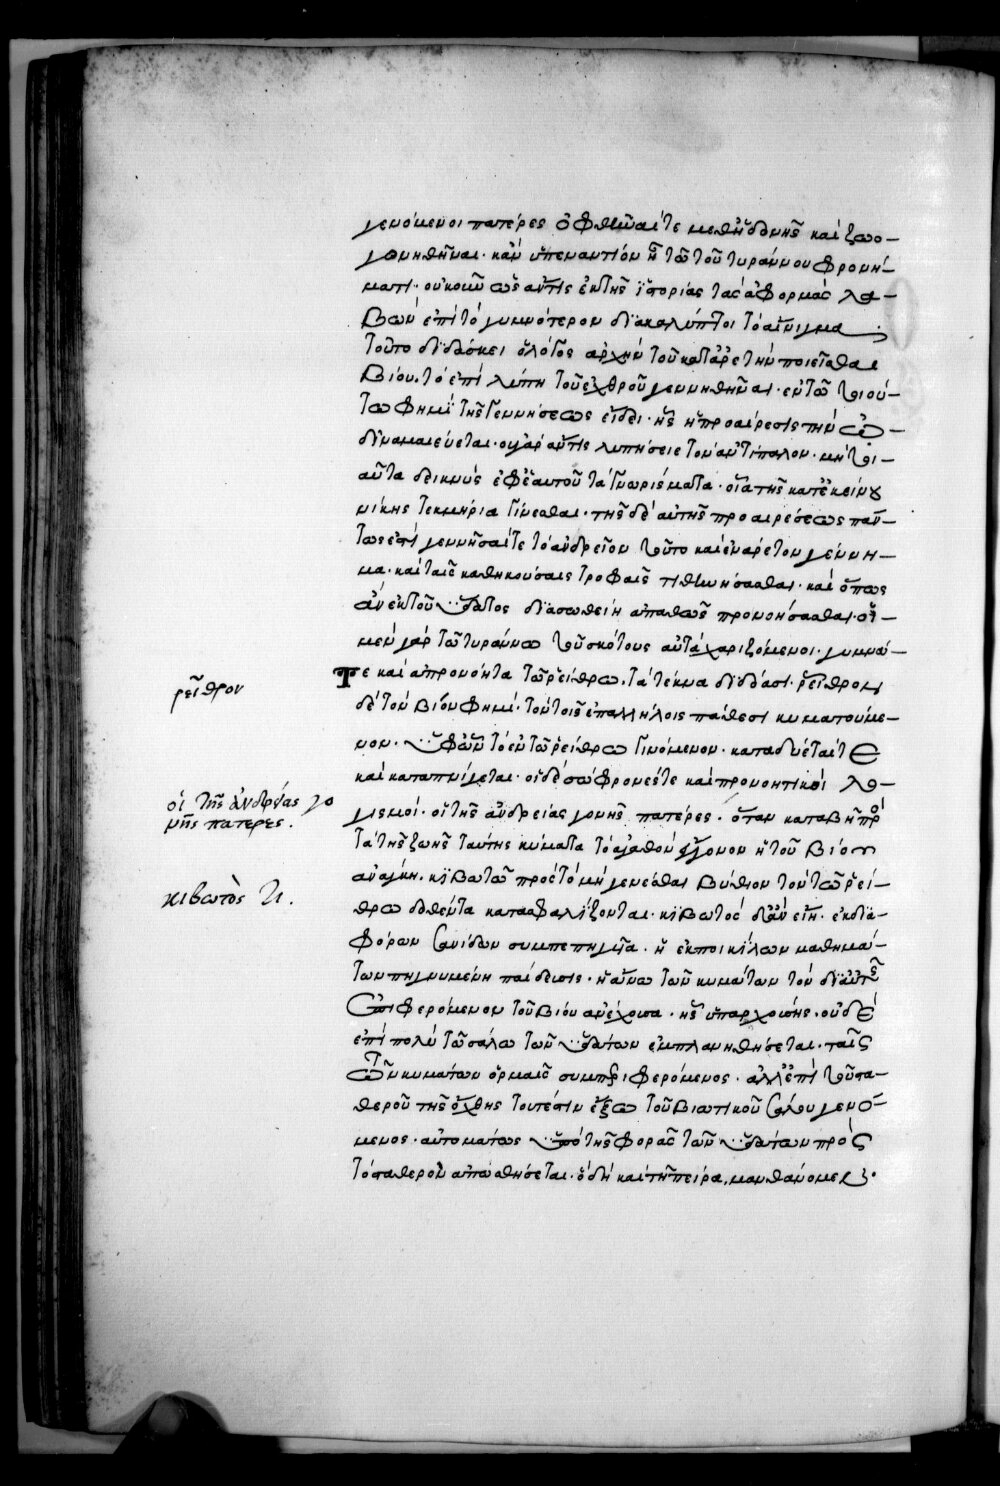 γενόμενοι πατέρες ὀφθῆναί τε μεθ' ἡδονῆς καὶ ζωο-
γονηθῆναι. κἂν ὑπεναντίον ἦ τῶ τοῦ τυράννου φρονή-
ματι. οὐκοῦν ὡς ἄν τις ἐκ τῆς ἱστορίας τὰς ἀφορμὰς λα-
βὼν ἐπὶ τὸ γυμνότερον διακαλύπτοι τὸ αἴνιγμα
τοῦτο διδάσκει ὁ λόγος ἀρχὴν τοῦ κατ' ἀρετὴν ποιεῖσθαι
βίου. τὸ ἐπὶ λύπη τοῦ ἐχθροῦ γεννηθῆναι. ἐν τῶ τοιού-
τω φημὶ τῆς γεννήσεως εἴδει. ἧς ἡ προαίρεσις τὴν ὠ-
δῖνα μαιεύεται. οὐ γὰρ ἄν τις λυπήσειε τὸν ἀντίπαλον. μὴ τοι-
αῦτα δεικνὺς ἐφ' ἑαυτοῦ τὰ γνωρίσματα. οἷα τῆς κατ' ἐκείνου
νίκης τεκμήρια γίνεσθαι. τῆς δὲ αὐτῆς προαιρέσεως πάν-
τως ἐστὶ γεννῆσαί τε τὸ ἀνδρεῖον τοῦτο καὶ ἐνάρετον γέννη-
μα. καὶ ταῖς καθηκούσαις τροφαῖς τιθηνήσασθαι. καὶ ὅπως
ἂν ἐκ τοῦ ὕδατος διασωθείη ἀπαθῶς προνοήσασθαι. οἱ
μὲν γὰρ τῶ τυράννω τοῦ σκότους αὐτὰ χαριζόμενοι. γυμνά
τε καὶ ἀπρονόητα τῶ ῥείθρω. τὰ τέκνα διδόασι. ῥεῖθρον
ῥεῖθρον
δὲ τὸν βίον φημί. τὸν τοῖς ἐπαλλήλοις πάθεσι κυματούμε-
νον. ὑφ' ὧν τὸ ἐν τῶ ῥείθρω γινόμενον. καταδύεταί τε
καὶ καταπνίγεται. οἱ δὲ σώφρονές τε καὶ προνοητικοὶ λο-
οἱ τῆς ἀνδρείας γο
νῆς πατέρες.
γισμοί. οἱ τῆς ἀνδρείας γονῆς πατέρες. ὅταν καταβῆ πρ
τὰ τῆς ζωῆς ταύτης κύματα τὸ ἀγαθὸν ἔγγονον ἡ τοῦ βίου
κιβωτὸς τί.
ἀνάγκη. κιβωτῶ πρὸς τὸ μὴ γενέσθαι βύθιον τὸν τῶ ῥεί-
θρω δοθέντα κατασφαλίζονται. κιβωτὸς δ' ἂν εἴη. ἐκ δια-
φόρων σανίδων συμπεπηγυῖα. ἡ ἐκ ποικίλων μαθημά-
των πηγνυμένη παίδευσις. ἡ ἄνω τῶν κυμάτων τὸν δι' αὐτῆς
ἐπιφερόμενον τοῦ βίου ἀνέχουσα. ἧς ὑπαρχούσης. οὐδὲ
ἐπὶ πολὺ τῶ σάλω τῶν ὑδάτων ἐμπλανηθήσεται. ταῖς
τῶν κυμάτων ὁρμαῖς συμπεριφερόμενος. ἀλλ' ἐπὶ τοῦ στα-
θεροῦ τῆς ὄχθης τουτέστιν ἔξω τοῦ βιωτικοῦ σάλου γενό-
μενος. αὐτομάτως ὑπὸ τῆς φορᾶς τῶν ὑδάτων πρὸς
τὸ σταθερὸν ἀπωσθήσεται. ὃ δὴ καὶ τῆ πείρα, μανθάνομεν.